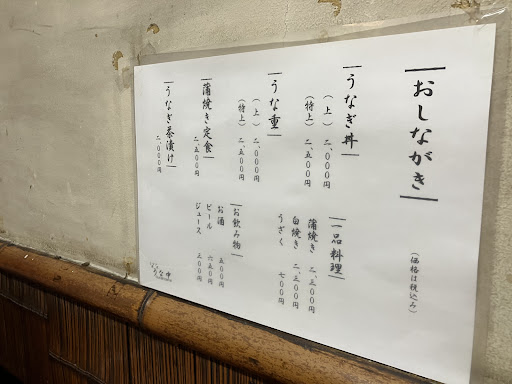 おしながき
(価格は税込み)
うなぎ丼
(上) 二、〇〇〇円
(特上) 二、五〇〇円
うな重
(上) 二、〇〇〇円
(特上) 二、五〇〇円
蒲焼き定食
二、五〇〇円
うなぎ茶漬け
二、〇〇〇円
一品料理
蒲焼き 二、五〇〇円
白焼き 二、五〇〇円
うざく 七〇〇円
お飲み物
お酒 五〇〇円
ビール 六五〇円
ジュース 三〇〇円